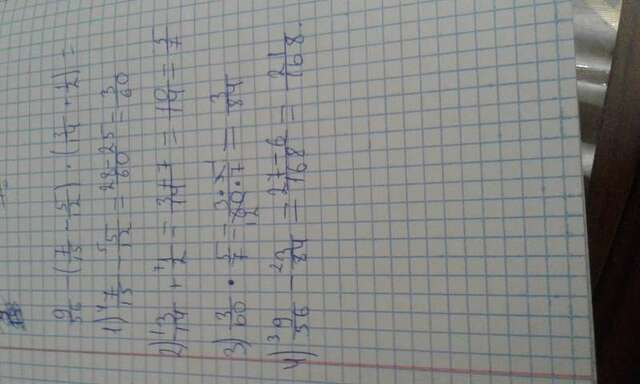 9/56 - (7/15 - 5/12) · (3/14 + 1/2) =
1) ⁴7/15 - ⁵5/12 = 28-25/60 = 3/60
2) ¹3/14 + ⁷1/2 = 3+7/14 = 10/14 = 5/7
3) 3/60 · 5/7 = 3·5/60·7 = 3/84
4) ³9/56 - ²3/84 = 27-6/168 = 21/168.